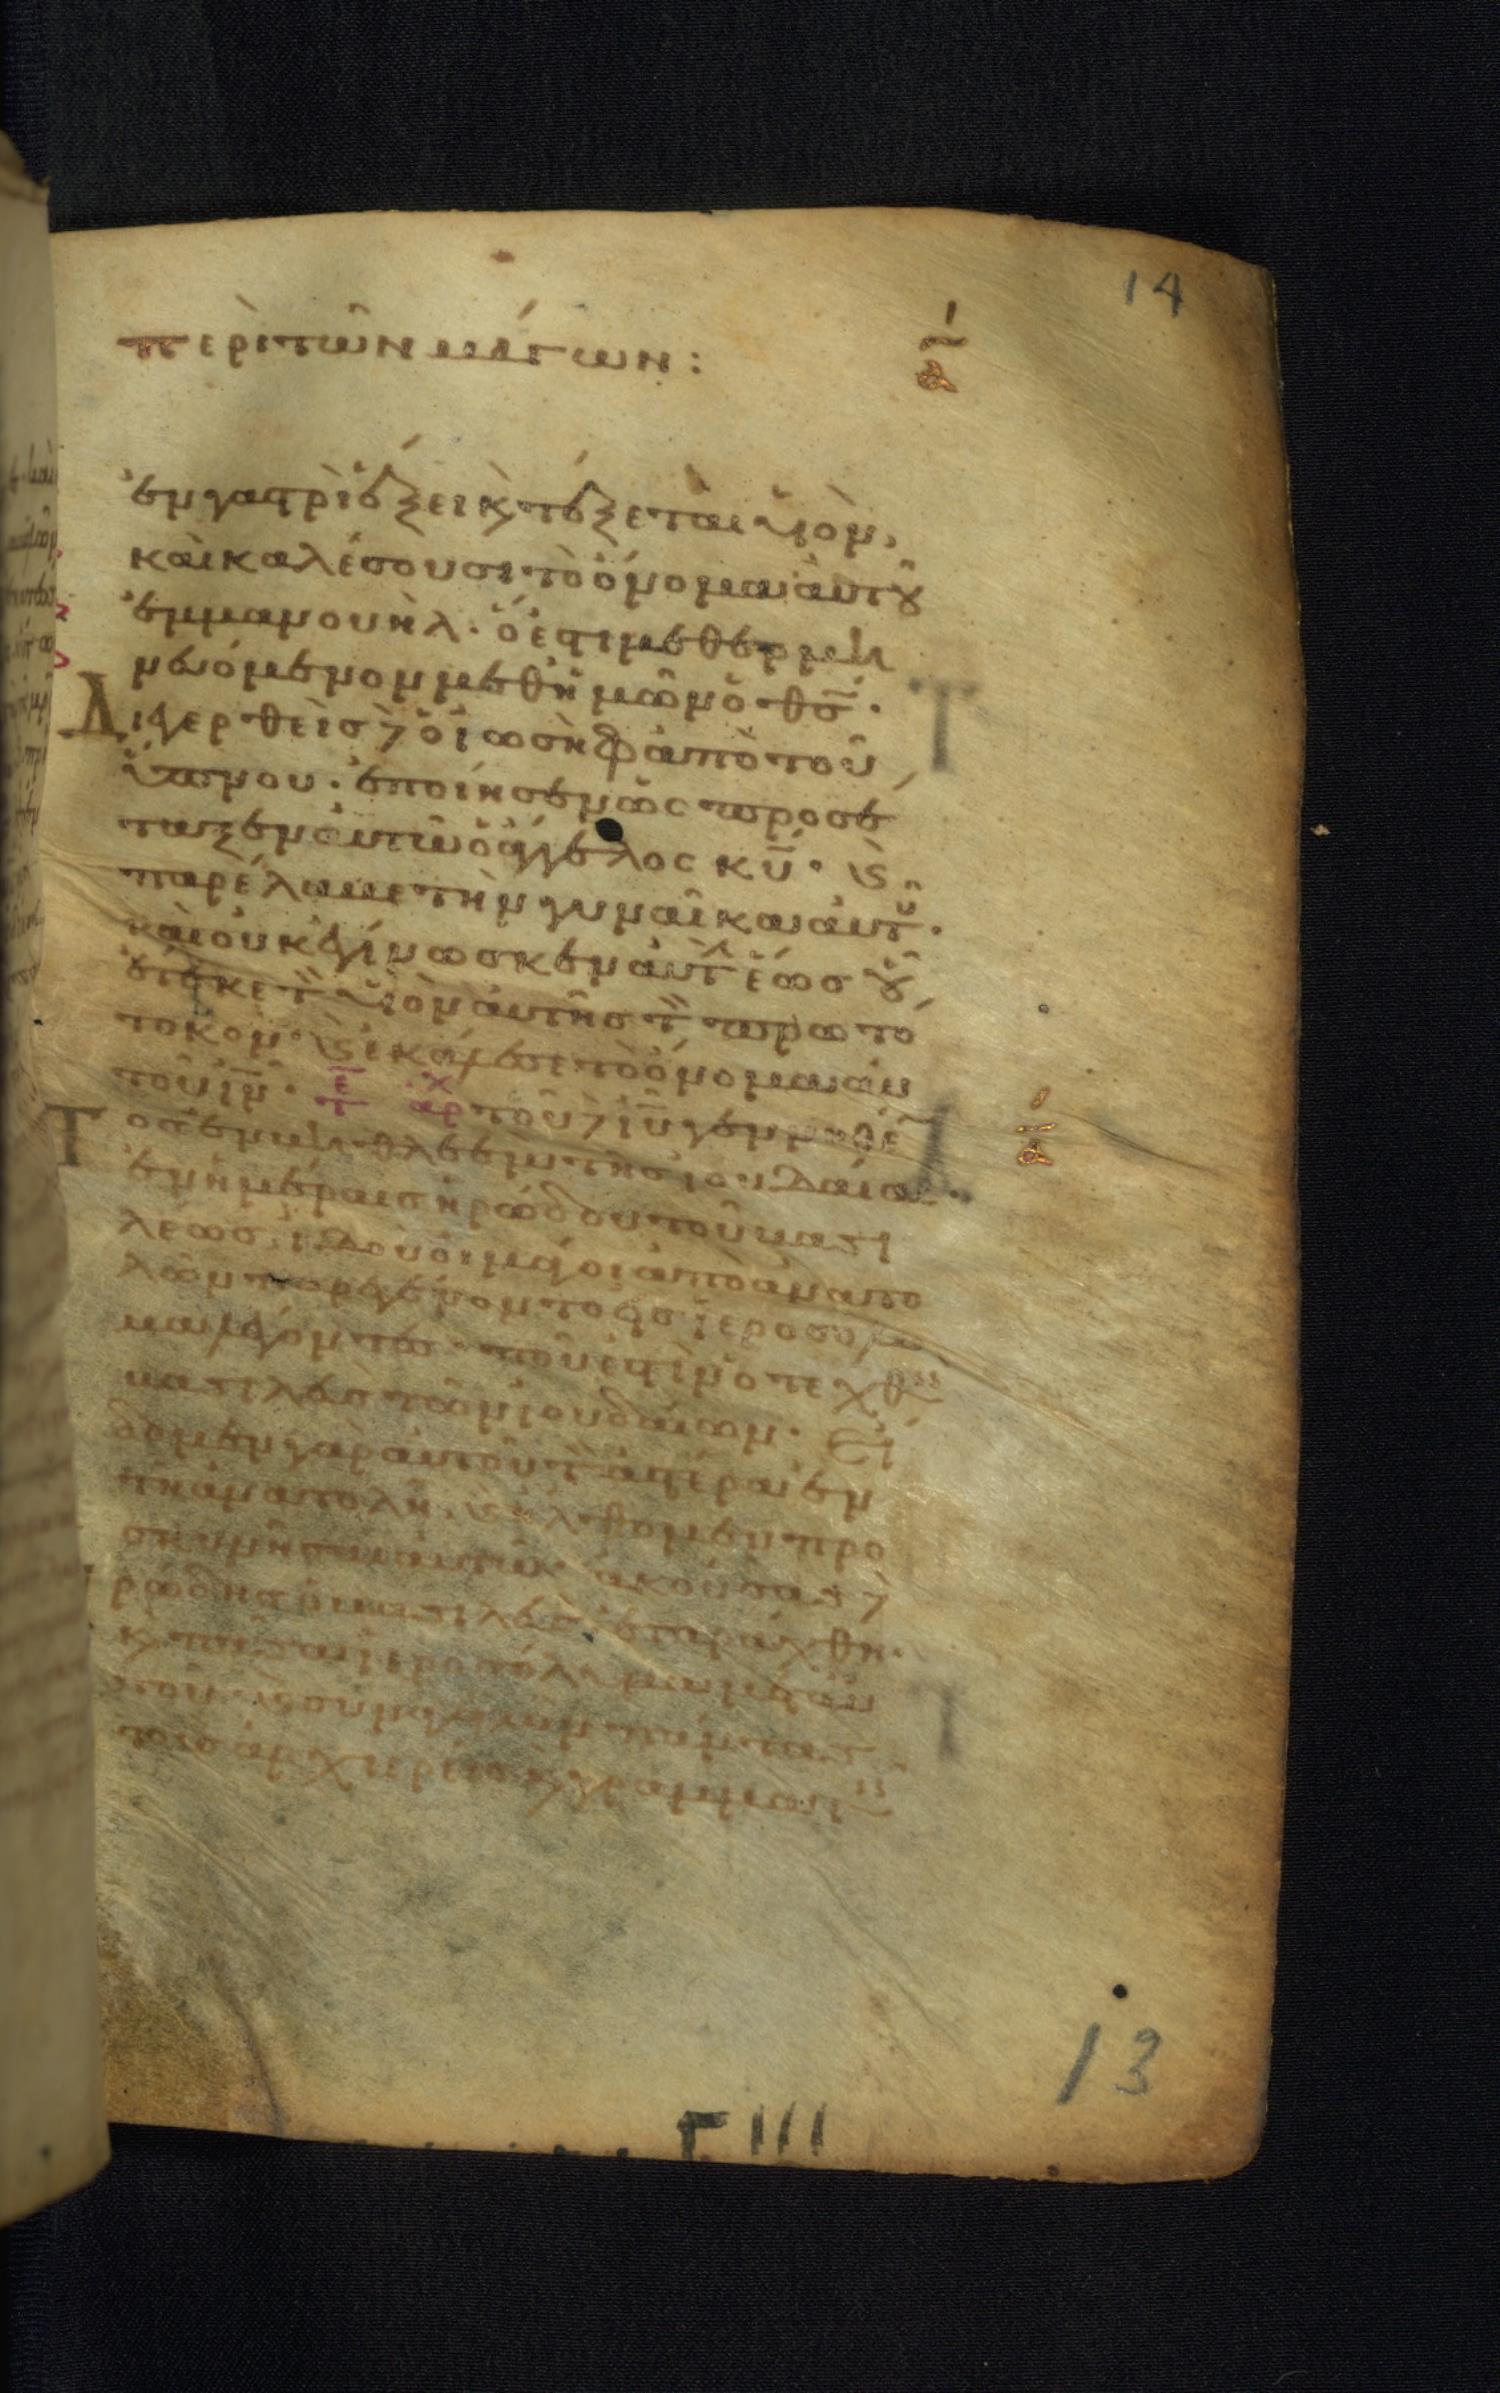 14
περὶ τῶν μάγων: ᾱ
ἐν γαστρὶ ἕξει κ τέξεται υἱὸν,
καὶ καλέσουσι τὸ ὄνομα αὐτοῦ
ἐμμανουήλ. ὅ ἐστι μεθερμη
νευόμενον μεθ ἡμῶν ὁ θσ̄.
Διεγερθεὶς δ ὁ ἰωσὴφ ἀπὸ τοῦ
ὕπνου. ἐποίησεν ὡς προσέ
ταξεν αὐτῶ ὁ ἄγγελος κῡ. κ
παρέλαβε τὴν γυναῖκα αὐτοῦ.
καὶ οὐκ ἐγίνωσκεν αὐτ ἕως οὗ
ἔτεκε τ υἱὸν αὐτῆς τ πρωτό
τοκον. κ ἐκάλεσε τὸ ὄνομα αὐ
τοῦ ῑν̄. τε αρχ τοῦ δ ῑῡ γεννηθέ
Τος ἐν βηθλεὲμ τῆς ἰουδαίας. ᾱ
ἐν ἡμέραις ἡρώδου τοῦ βασι
λέως. ἰδοὺ οἱ μάγοι ἀπὸ ἀνατο
λῶν παρεγένοντο εἰς ἱεροσολυ
μα λέγοντες. ποῦ ἐστὶν ὁ τεχθεὶς
βασιλεὺς τῶν ἰουδαίων. εἴ
δομεν γὰρ αὐτοῦ τ ἀστέρα ἐν
τῆ ἀνατολῆ, κ ἤλθομεν προ
σκυνῆσαι αὐτῶ. ἀκούσας δ
ρώδης ὁ βασιλεὺς ἐταράχθη.
κ πᾶσα ἱεροσόλυμα μετ αὐ
τοῦ. κ συναγαγὼν πάντας
τοὺς ἀρχιερεῖς κ γραμματεῖς
13